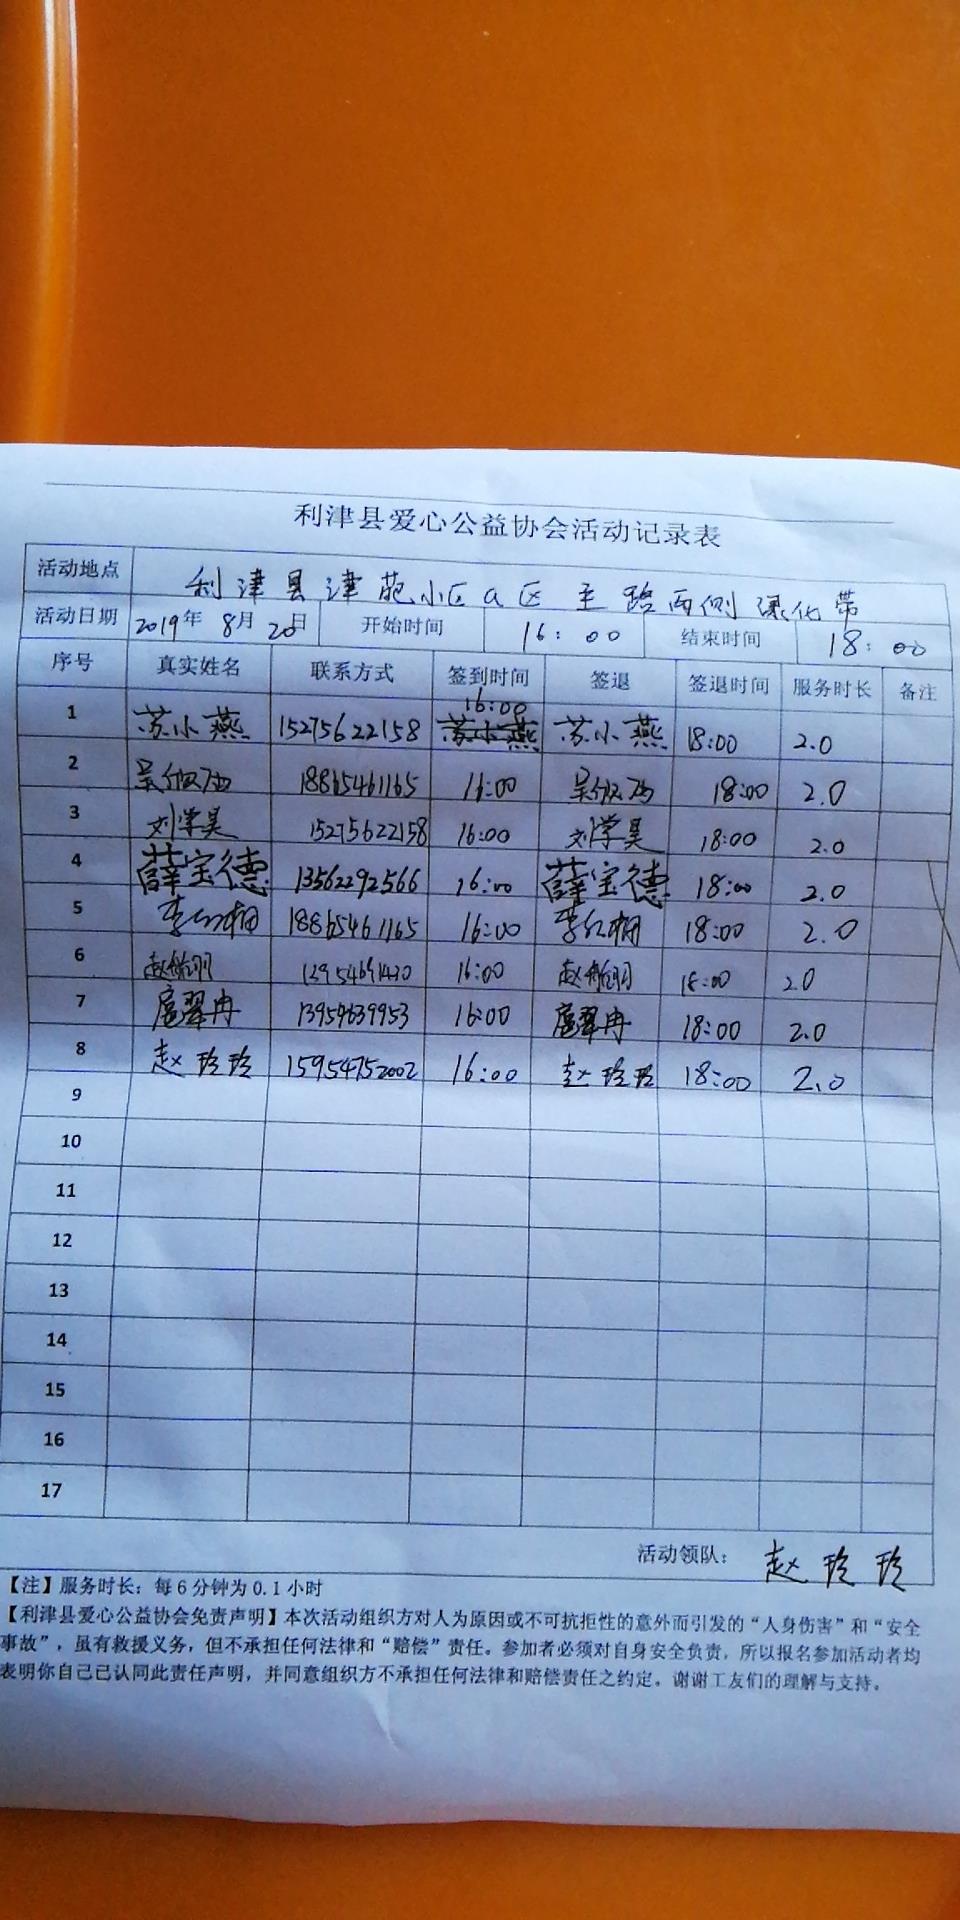 利津县爱心公益协会活动记录表
活动地点 利津县津苑小区a区主路两侧绿化带
活动日期 2019年8月20日 开始时间 16:00 结束时间 18:00
序号 真实姓名 联系方式 签到时间 签退 签退时间 服务时长 备注
1 苏小燕 15275622158 16:00 苏小燕 苏小燕 18:00 2.0
2 18865461165 16:00 18:00 2.0
3 刘学昊 15275622158 16:00 刘学昊 18:00 2.0
4 薛宝德 13562292566 16:00 薛宝德 18:00 2.0
5 李红梅 18865461165 16:00 李红梅 18:00 2.0
6 16:00 18:00 2.0
7 扈翠冉 16:00 扈翠冉 18:00 2.0
8 赵玲玲 15954752002 16:00 赵玲玲 18:00 2.0
9
10
11
12
13
14
15
16
17
活动领队： 赵玲玲
【注】服务时长：每6分钟为0.1小时
【利津县爱心公益协会免责声明】本次活动组织方对人为原因或不可抗拒性的意外而引发的“人身伤害”和“安全
事故”，虽有救援义务，但不承担任何法律和“赔偿”责任。参加者必须对自身安全负责，所以报名参加活动者均
表明你自己已认同此责任声明，并同意组织方不承担任何法律和赔偿责任之约定。谢谢工友们的理解与支持。